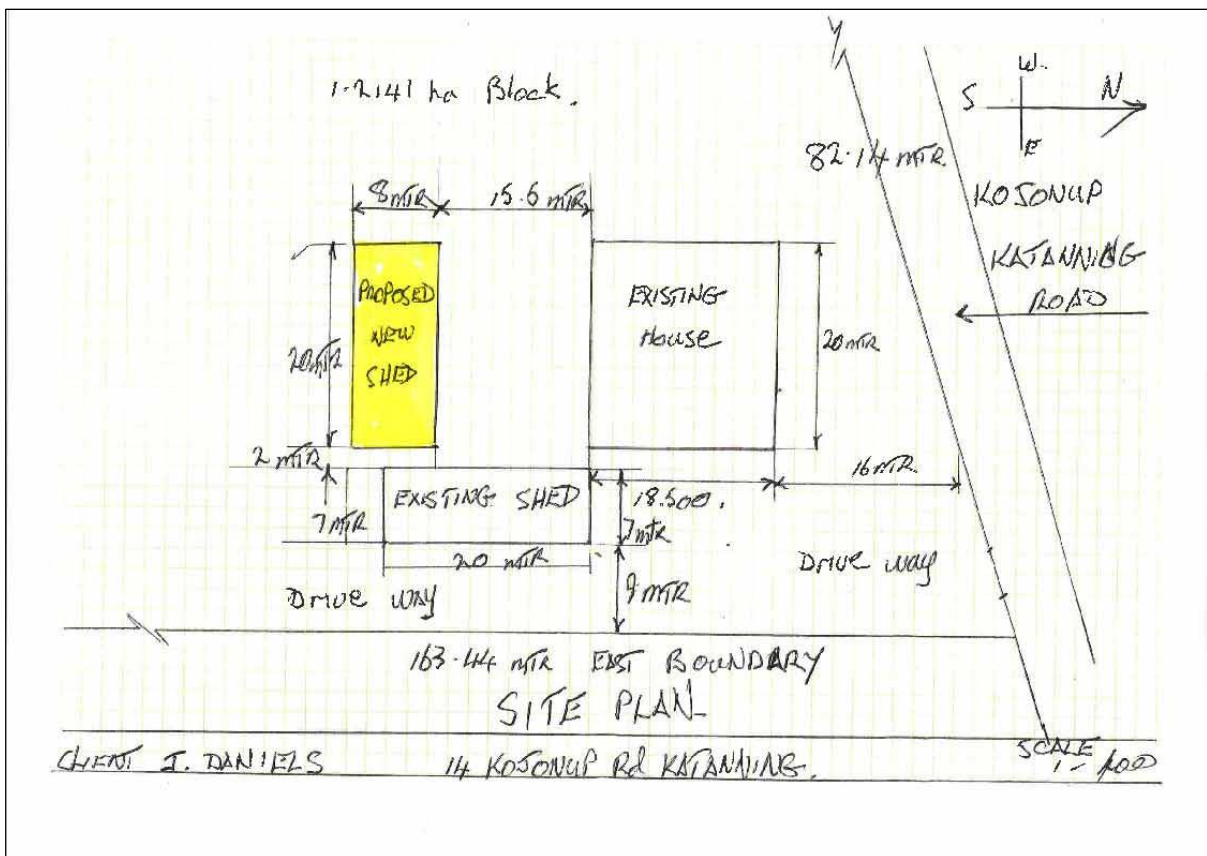 1.2141 ha Block.
W.
S N
E
82.14 MTR.
KOJONUP
KATANNING
ROAD
8 MTR 15.6 MTR
PROPOSED
NEW
SHED
20 MTR
EXISTING
House
20 MTR
2 MTR
16 MTR.
EXISTING SHED
18.500.
7 MTR
7 MTR
20 MTR
Drive way
Drive way
9 MTR
163.44 MTR EAST BOUNDARY
SITE PLAN
CLIENT J. DANIELS 14 KOJONUP Rd KATANNING.
SCALE